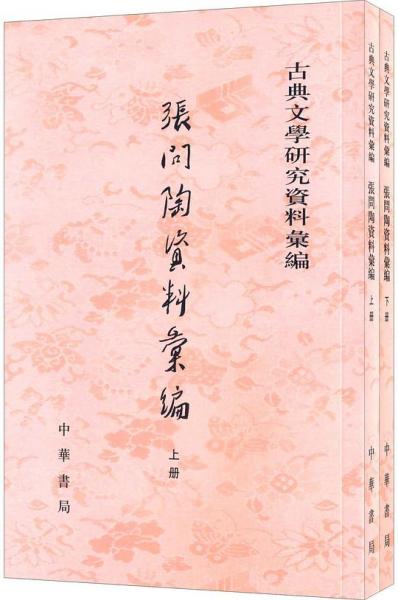 古典文學研究資料彙編
張問陶資料彙編
上册
中華書局
古典文學研究資料彙編 張問陶資料彙編 上册 中華書局
古典文學研究資料彙編 張問陶資料彙編 下册 中華書局